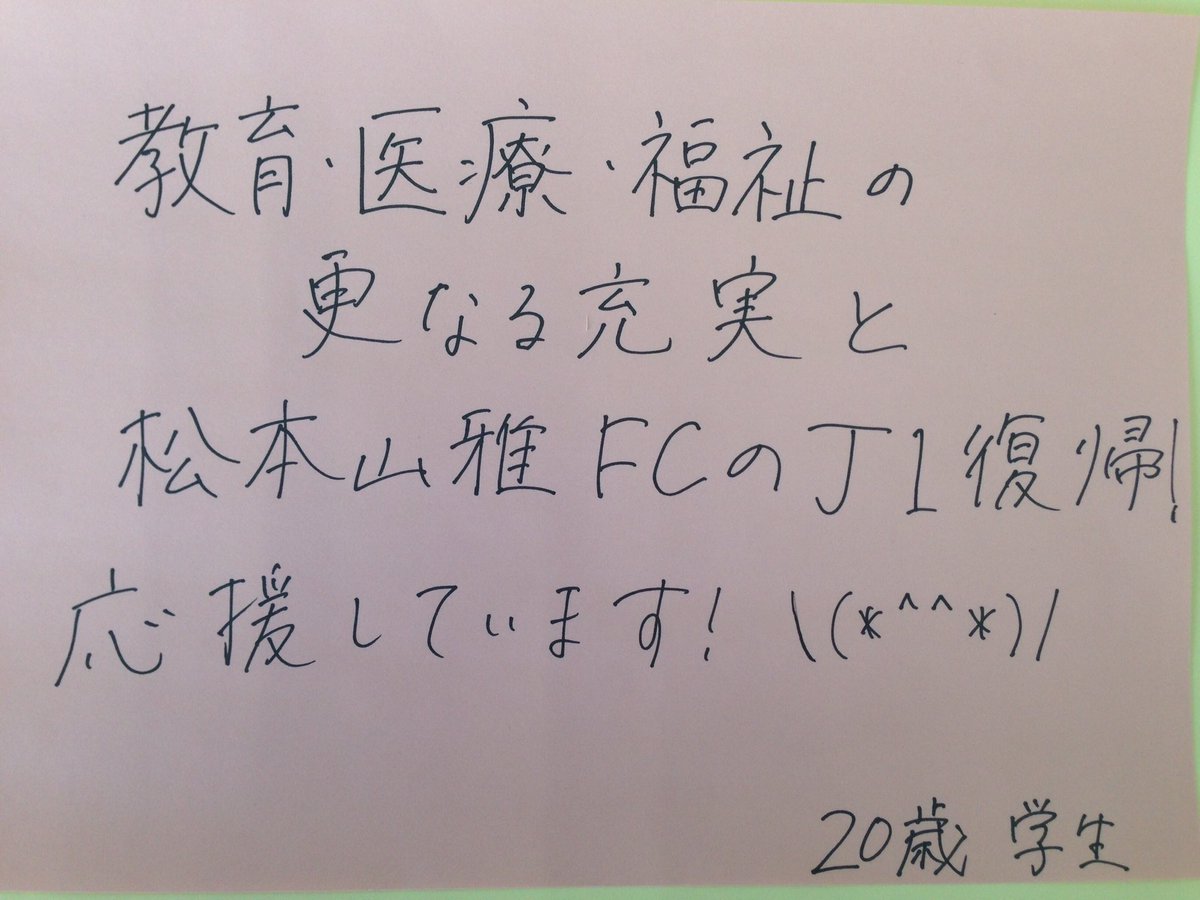 教育・医療・福祉の
更なる充実と
松本山雅FCのJ1復帰!
応援しています! \(*^^*)/
20歳 学生